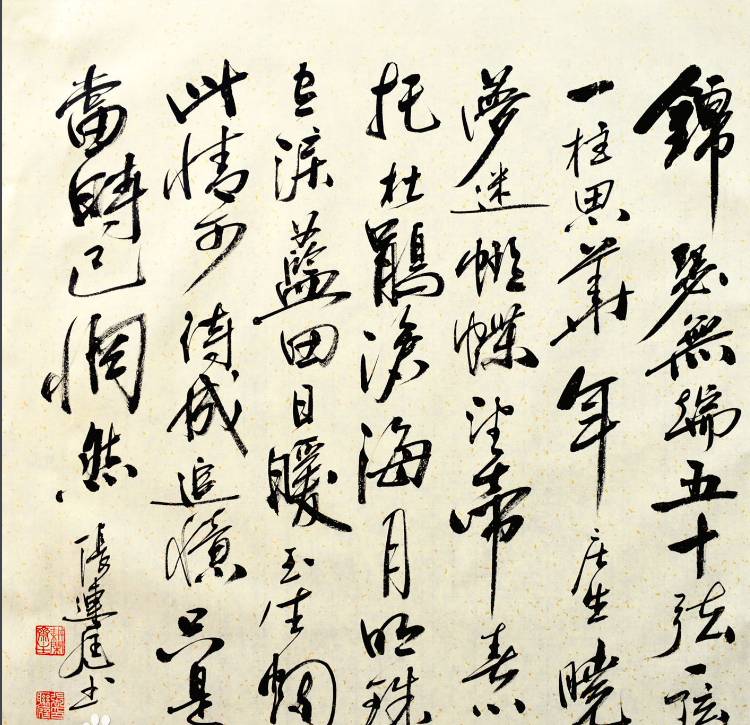 錦瑟無端五十弦一弦
一柱思華年庄生曉
夢迷蝴蝶望帝春心
托杜鵑滄海月明珠
有淚藍田日暖玉生烟
此情可待成追憶只是
當時已惘然
張連书